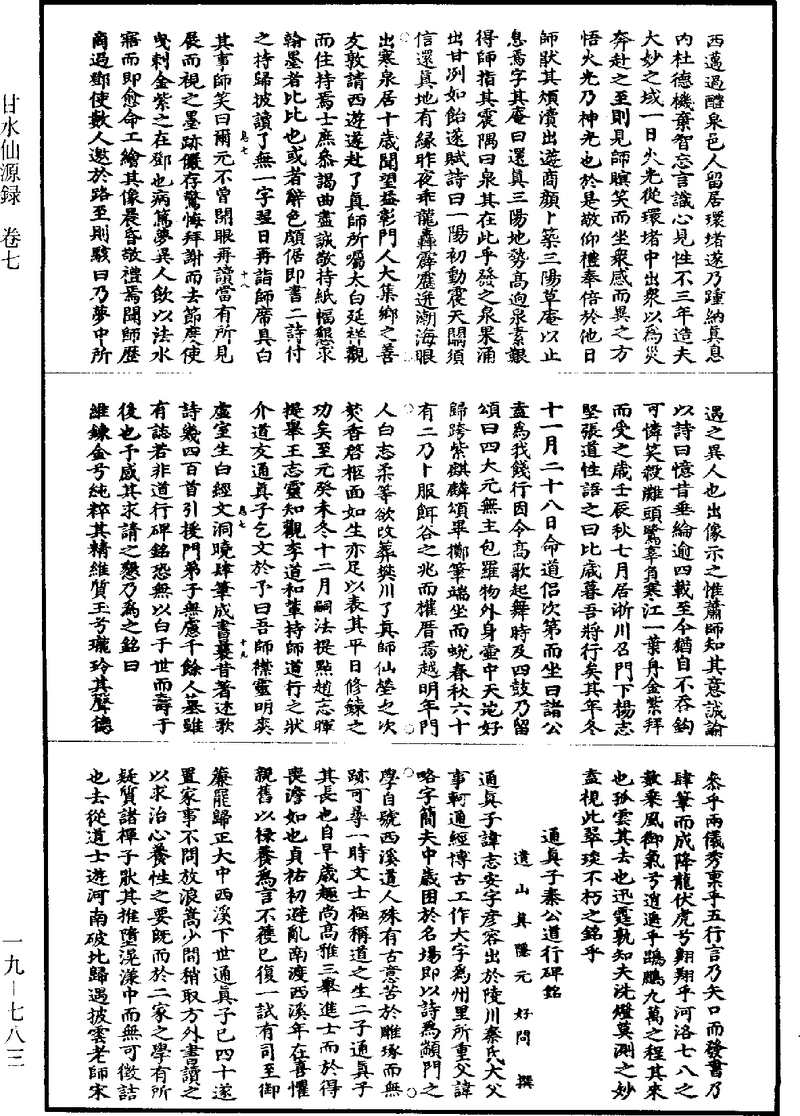 甘水仙源録　卷七
西邁過醴泉邑人留居環堵遂乃踵納真息
内杜德機棄智忘言識心見性不三年造夫
大妙之域一日火光從環堵中出衆以爲災
奔赴之至則見師瞑笑而坐衆感而異之方
悟火光乃神光也於是敬仰禮奉倍於他日
師猒其煩潰出遊商顔卜築三陽草庵以止
息焉字其庵曰還真三陽地勢高迥泉素艱
得師指其震隅曰泉其在此乎發之泉果涌
出甘冽如飴遂賦詩曰一陽初動震天關須
信還真地有緣昨夜乖龍轟霹靂迸潮海眼
出寒泉居十歲聞望益彰門人大集鄉之善
友敦請西遊遂赴了真師所囑太白延祥觀
而住持焉士庶叅謁曲盡誠敬持紙幅懇求
翰墨者比比也或者解色頗倨即書二詩付
之持歸披讀了無一字翌日再詣師席具白
其事師笑曰爾元不曾開眼再讀當有所見
展而視之墨跡儼存驚悔拜謝而去節度使
曳剌金紫之在鄧也病篤夢異人飲以法水
寤而即愈命工繪其像晨昏敬禮焉聞師歷
商過鄧使數人邀於路至則駭曰乃夢中所
遇之異人也出像示之惟蕭師知其意誠諭
以詩曰憶昔垂綸逾四載至今猶自不吞鈎
可憐笑殺灘頭鷺辜負寒江一葉舟金紫拜
而受之歲壬辰秋七月居淅川召門下楊志
堅張道性語之曰比歲暮吾將行矣其年冬
十一月二十八日命道侶次第而坐曰諸公
盍爲我餞行因令高歌起舞時及四鼓乃留
頌曰四大元無主包羅物外身壺中天地好
歸跨紫麒麟頌畢擲筆端坐而蛻春秋六十
有二乃卜服餌谷之兆而權厝焉越明年門
人白志柔等欲改葬樊川了真師仙塋之次
焚香啓柩面如生亦足以表其平日修鍊之
功矣至元癸未冬十二月嗣法提點趙志暉
提舉王志靈知觀李道和輩持師道行之狀
介道友通真子乞文於予曰吾師襟靈明爽
虛室生白經文洞曉肆筆成書曩昔著述歌
詩幾四百首引援門弟子無慮千餘人墓雖
有誌若非道行碑銘恐無以白于世而壽于
後也予感其求請之懇乃爲之銘曰
維鍊金兮純粹其精維質玉兮瓏玲其聲德
叅乎兩儀秀稟乎五行言乃矢口而發書乃
肆筆而成降龍伏虎兮翱翔乎河洛七八之
數乘風御氣兮逍遙乎鵾鵬九萬之程其來
也孤雲其去也迅霆孰知夫洗燈莫測之妙
盍視此翠琰不朽之銘乎
通真子秦公道行碑銘
遺山真隱元好問撰
通真子諱志安字彦容出於陵川秦氏大父
事軻通經博古工作大字爲州里所重父諱
略字簡夫中歲困於名場即以詩爲顓門之
學自號西溪道人殊有古意苦於雕琢而無
跡可尋一時文士極稱道之生二子通真子
其長也自早歲趣尚高雅三舉進士而於得
喪澹如也貞祐初避亂南渡西溪年在喜懼
親舊以禄養爲言不獲已復一試有司至御
簾罷歸正大中西溪下世通真子已四十遂
置家事不問放浪嵩少間稍取方外書讀之
以求治心養性之要既而於二家之學有所
疑質諸禪子猒其推墮滉漾中而無可徵詰
也去從道士遊河南破北歸遇披雲老師宋
息七　十八
息七　十九
一九－七八三